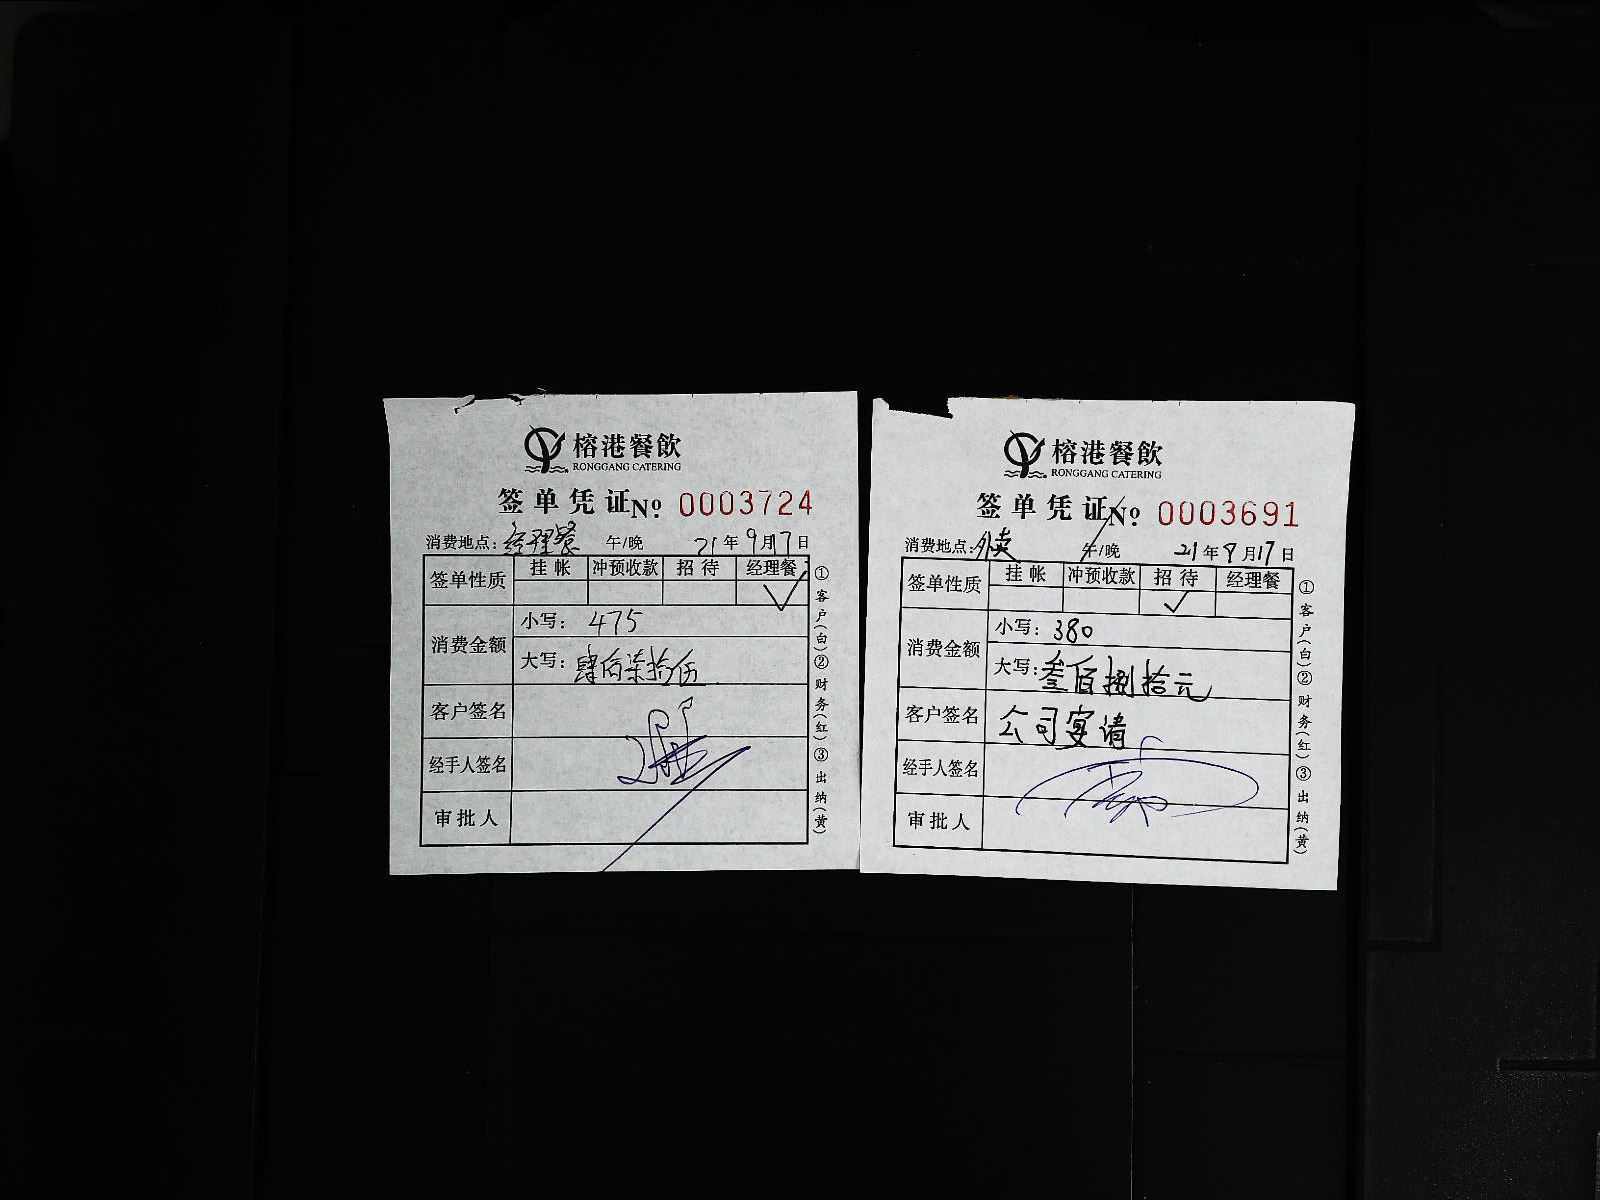 榕港餐飲
RONGGANG CATERING
签单凭证 No. 0003724
消费地点: 经理餐 午/晚 21年9月17日
签单性质 挂帐 冲预收款 招待 经理餐 ✓
消费金额 小写: 475
大写: 肆佰柒拾伍
客户签名
经手人签名
审批人
①客户(白)②财务(红)③出纳(黄)
榕港餐飲
RONGGANG CATERING
签单凭证 No. 0003691
消费地点: 外卖 午/晚 21年9月17日
签单性质 挂帐 冲预收款 招待 ✓ 经理餐
消费金额 小写: 380
大写: 叁佰捌拾元
客户签名 公司宴请
经手人签名
审批人
①客户(白)②财务(红)③出纳(黄)